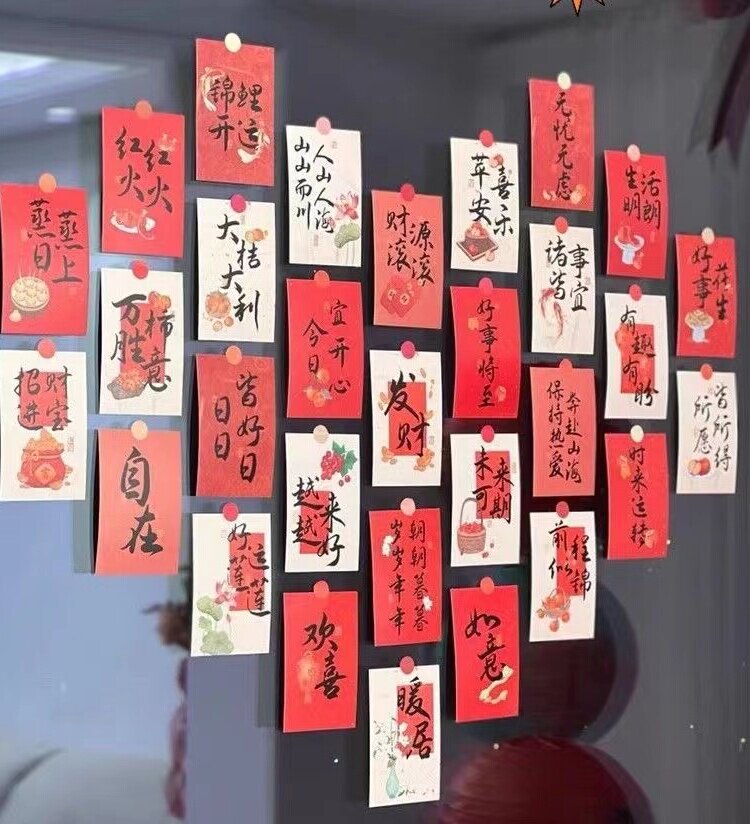 蒸蒸日上
招财进宝
红红火火
万柿胜意
自在
锦鲤开运
大桔大利
日日皆好日
好运莲莲
人山人海
山山而川
今日宜开心
越来越好
欢喜
财源滚滚
发财
朝朝暮暮
岁岁年年
暖居
苹安喜乐
好事将至
未来可期
如意
无忧无虑
诸事皆宜
奔赴山海
保持热爱
前程似锦
生活明朗
有趣有盼
时来运转
好事花生
所愿皆所得